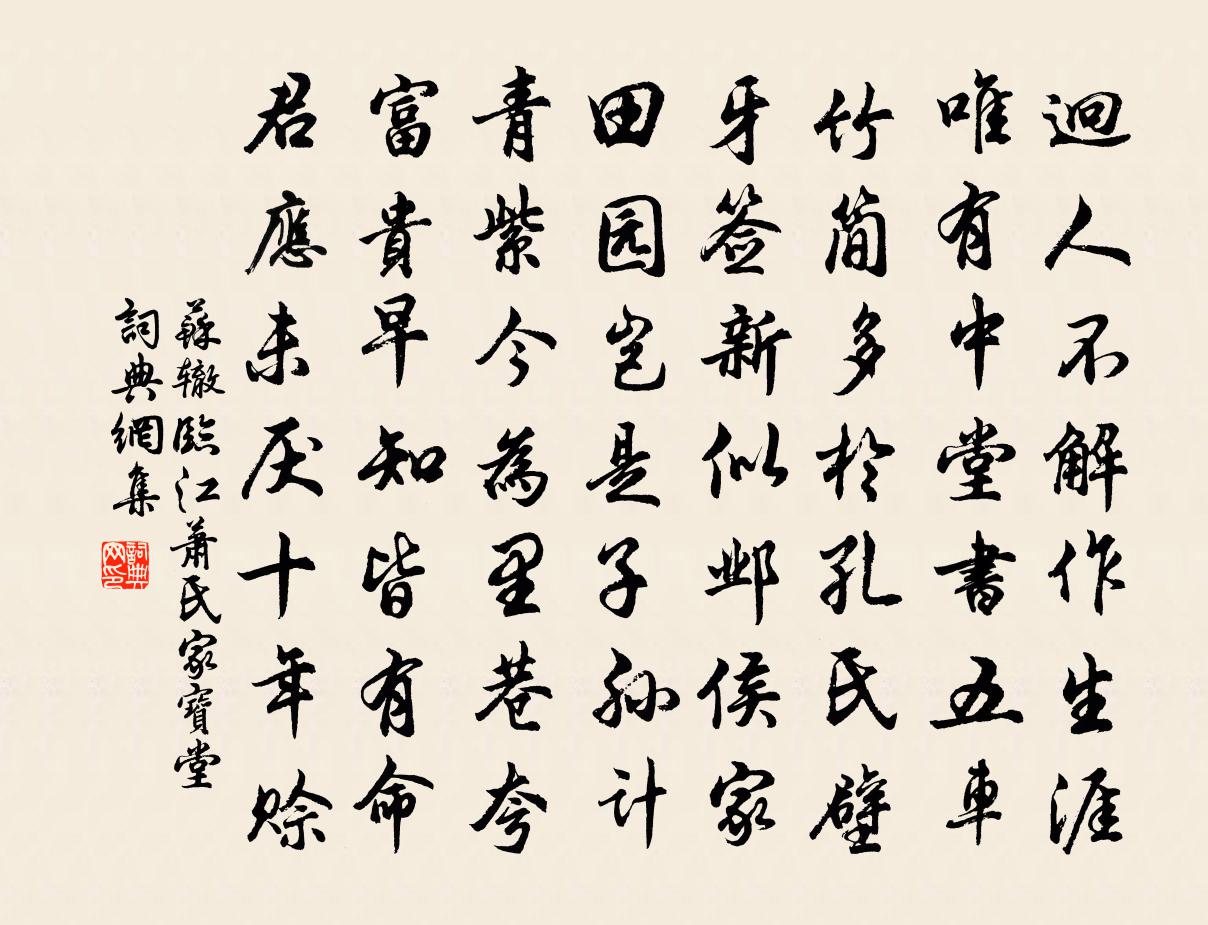 迥人不解作生涯
唯有中堂書五車
竹简多於孔氏壁
牙签新似邺侯家
田园岂是子孙计
青紫今為里巷夸
富貴早知皆有命
君應未厌十年赊
蘇辙臨江萧氏家寶堂
詞典網集
詞典网印